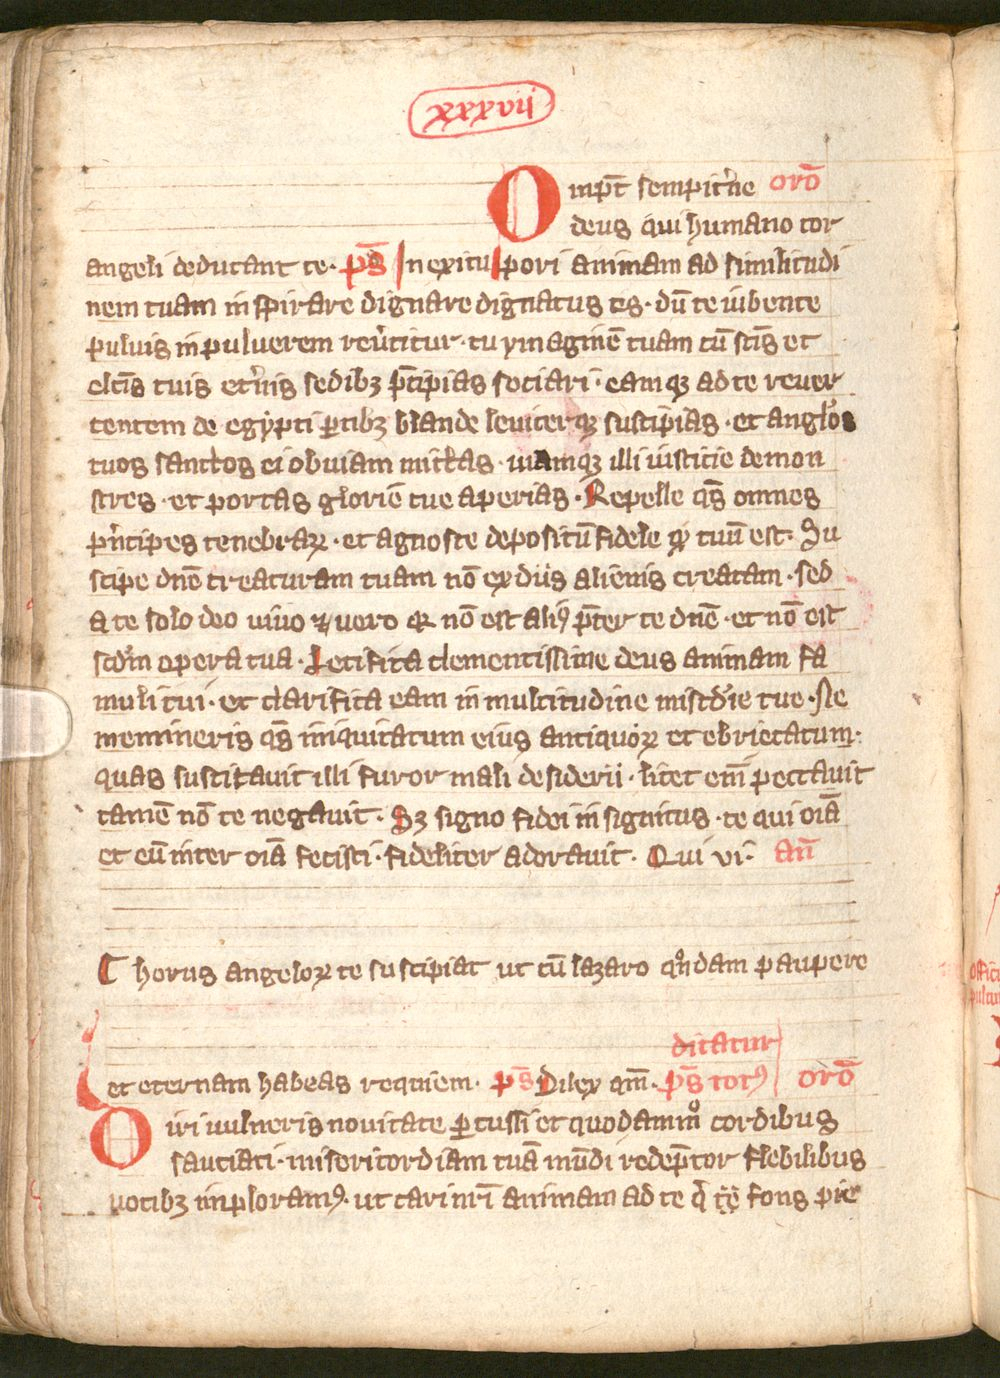 xxxvii
Omp̄t sempit̉ne orō
deus qui humano cor
angeli deducant te · p̄s In exitu pori animam ad similitudi
nem tuam inspirare dignare dignatus es · dū te iubente
puluis in puluerem reu̓titur · tu ymaginē tuam cū sc̄is et
elc̄is tuis et̉nis sedibꝫ p̄cipias sociari · eamqꝫ ad te reuer
tentem de egypti ꝑtibꝫ blande leuiterqꝫ suscipias · et anglōs
tuos sanctos ei obuiam mittas · uiamqꝫ illi iusticie demon
stres · et portas glorie tue aperias · Repelle qs̄ omnes
pͥncipes tenebraꝝ · et agnosce depositū fidele qͩ tuū est · Su
scipe dn̄e creaturam tuam nō ex diis alienis creatam · sed
a te solo deo uiuo ⁊ uero qꝛ nō est aliꝰ p̄ter te dn̄e · et nō est
scd̄m opera tua · Letifica clementissime deus animam fa
muli tui · et clarifica eam in multitudine misc̄die tue · Ne
memineris qs̄ iniquitatum eius antiquoꝝ et ebrietatum ·
quas suscitauit illi furor mali desiderii · licet em̄ peccauit
tamē nō te negauit · Sꝫ signo fidei insignitus · te qui oīa
et eū inter oīa fecisti · fideliter adorauit · Qui vi · an̄
Chorus angeloꝝ te suscipiat ut cū lazaro qͦndam paupere
dicatur
et eternam habeas requiem · p̄s Dilex qm̄ · p̄s totꝰ orō
Diri uulneris nouitate ꝑculsi et quodammͦ cordibus
sauciati · misericordiam tuā mūdi redēptor flebilibus
uocibꝫ imploramꝰ · ut cari nr̄i animam ad te q̄ fons pie